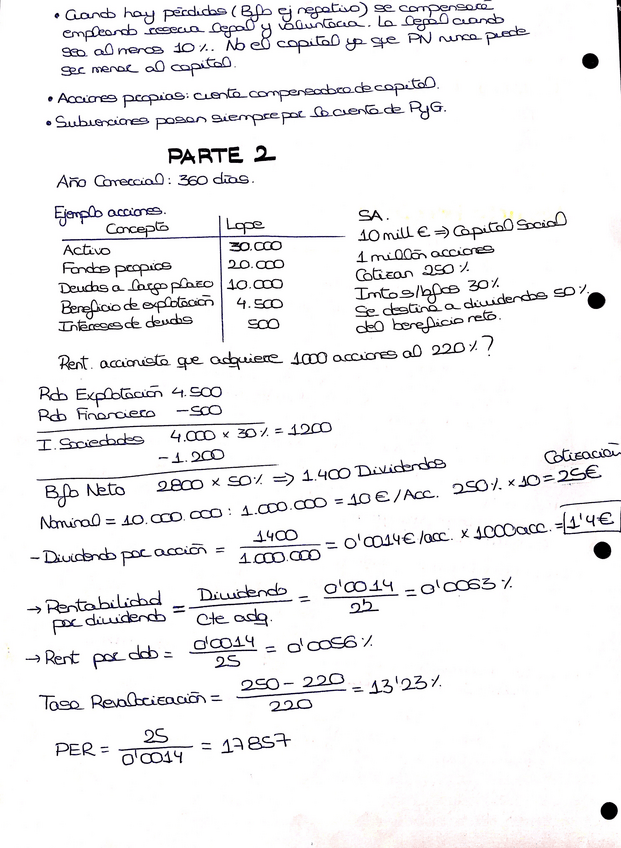 • Cuando hay pérdidas (Bfo ej negativo) se compensará
empleando reserva legal y voluntaria. La legal cuando
sea al menos 10%. No el capital ya que PN nunca puede
ser menor al capital.
• Acciones propias: cuenta compensadora de capital.
• Subvenciones pasan siempre por la cuenta de PyG.
PARTE 2
Año Comercial: 360 días.
Ejemplo acciones.
Concepto Lope
Activo 30.000
Fondos propios 20.000
Deudas a largo plazo 10.000
Beneficio de explotación 4.500
Intereses de deudas 500
SA.
10 mill € ⇒ Capital Social
1 millón acciones
Cotizan 250%
Imto s/bfos 30%
Se destina a dividendos 50%
del beneficio neto.
Rent. accionista que adquiere 1000 acciones al 220%?
Rdo Explotación 4.500
Rdo Financiero -500
I. Sociedades 4.000 x 30% = 1200
-1.200
Bfo Neto 2800 x 50% ⇒ 1.400 Dividendos
Cotización
Nominal = 10.000.000 : 1.000.000 = 10 €/Acc. 250% x 10 = 25€
- Dividendo por acción = 1400 / 1.000.000 = 0'0014€/acc. x 1000acc. = 1'4€
→ Rentabilidad por dividendo = Dividendo / Cte adq. = 0'0014 / 22 = 0'0063%
→ Rent por ddo = 0'0014 / 25 = 0'0056%
Tasa Revalorización = 250 - 220 / 220 = 13'23%
PER = 25 / 0'0014 = 17857